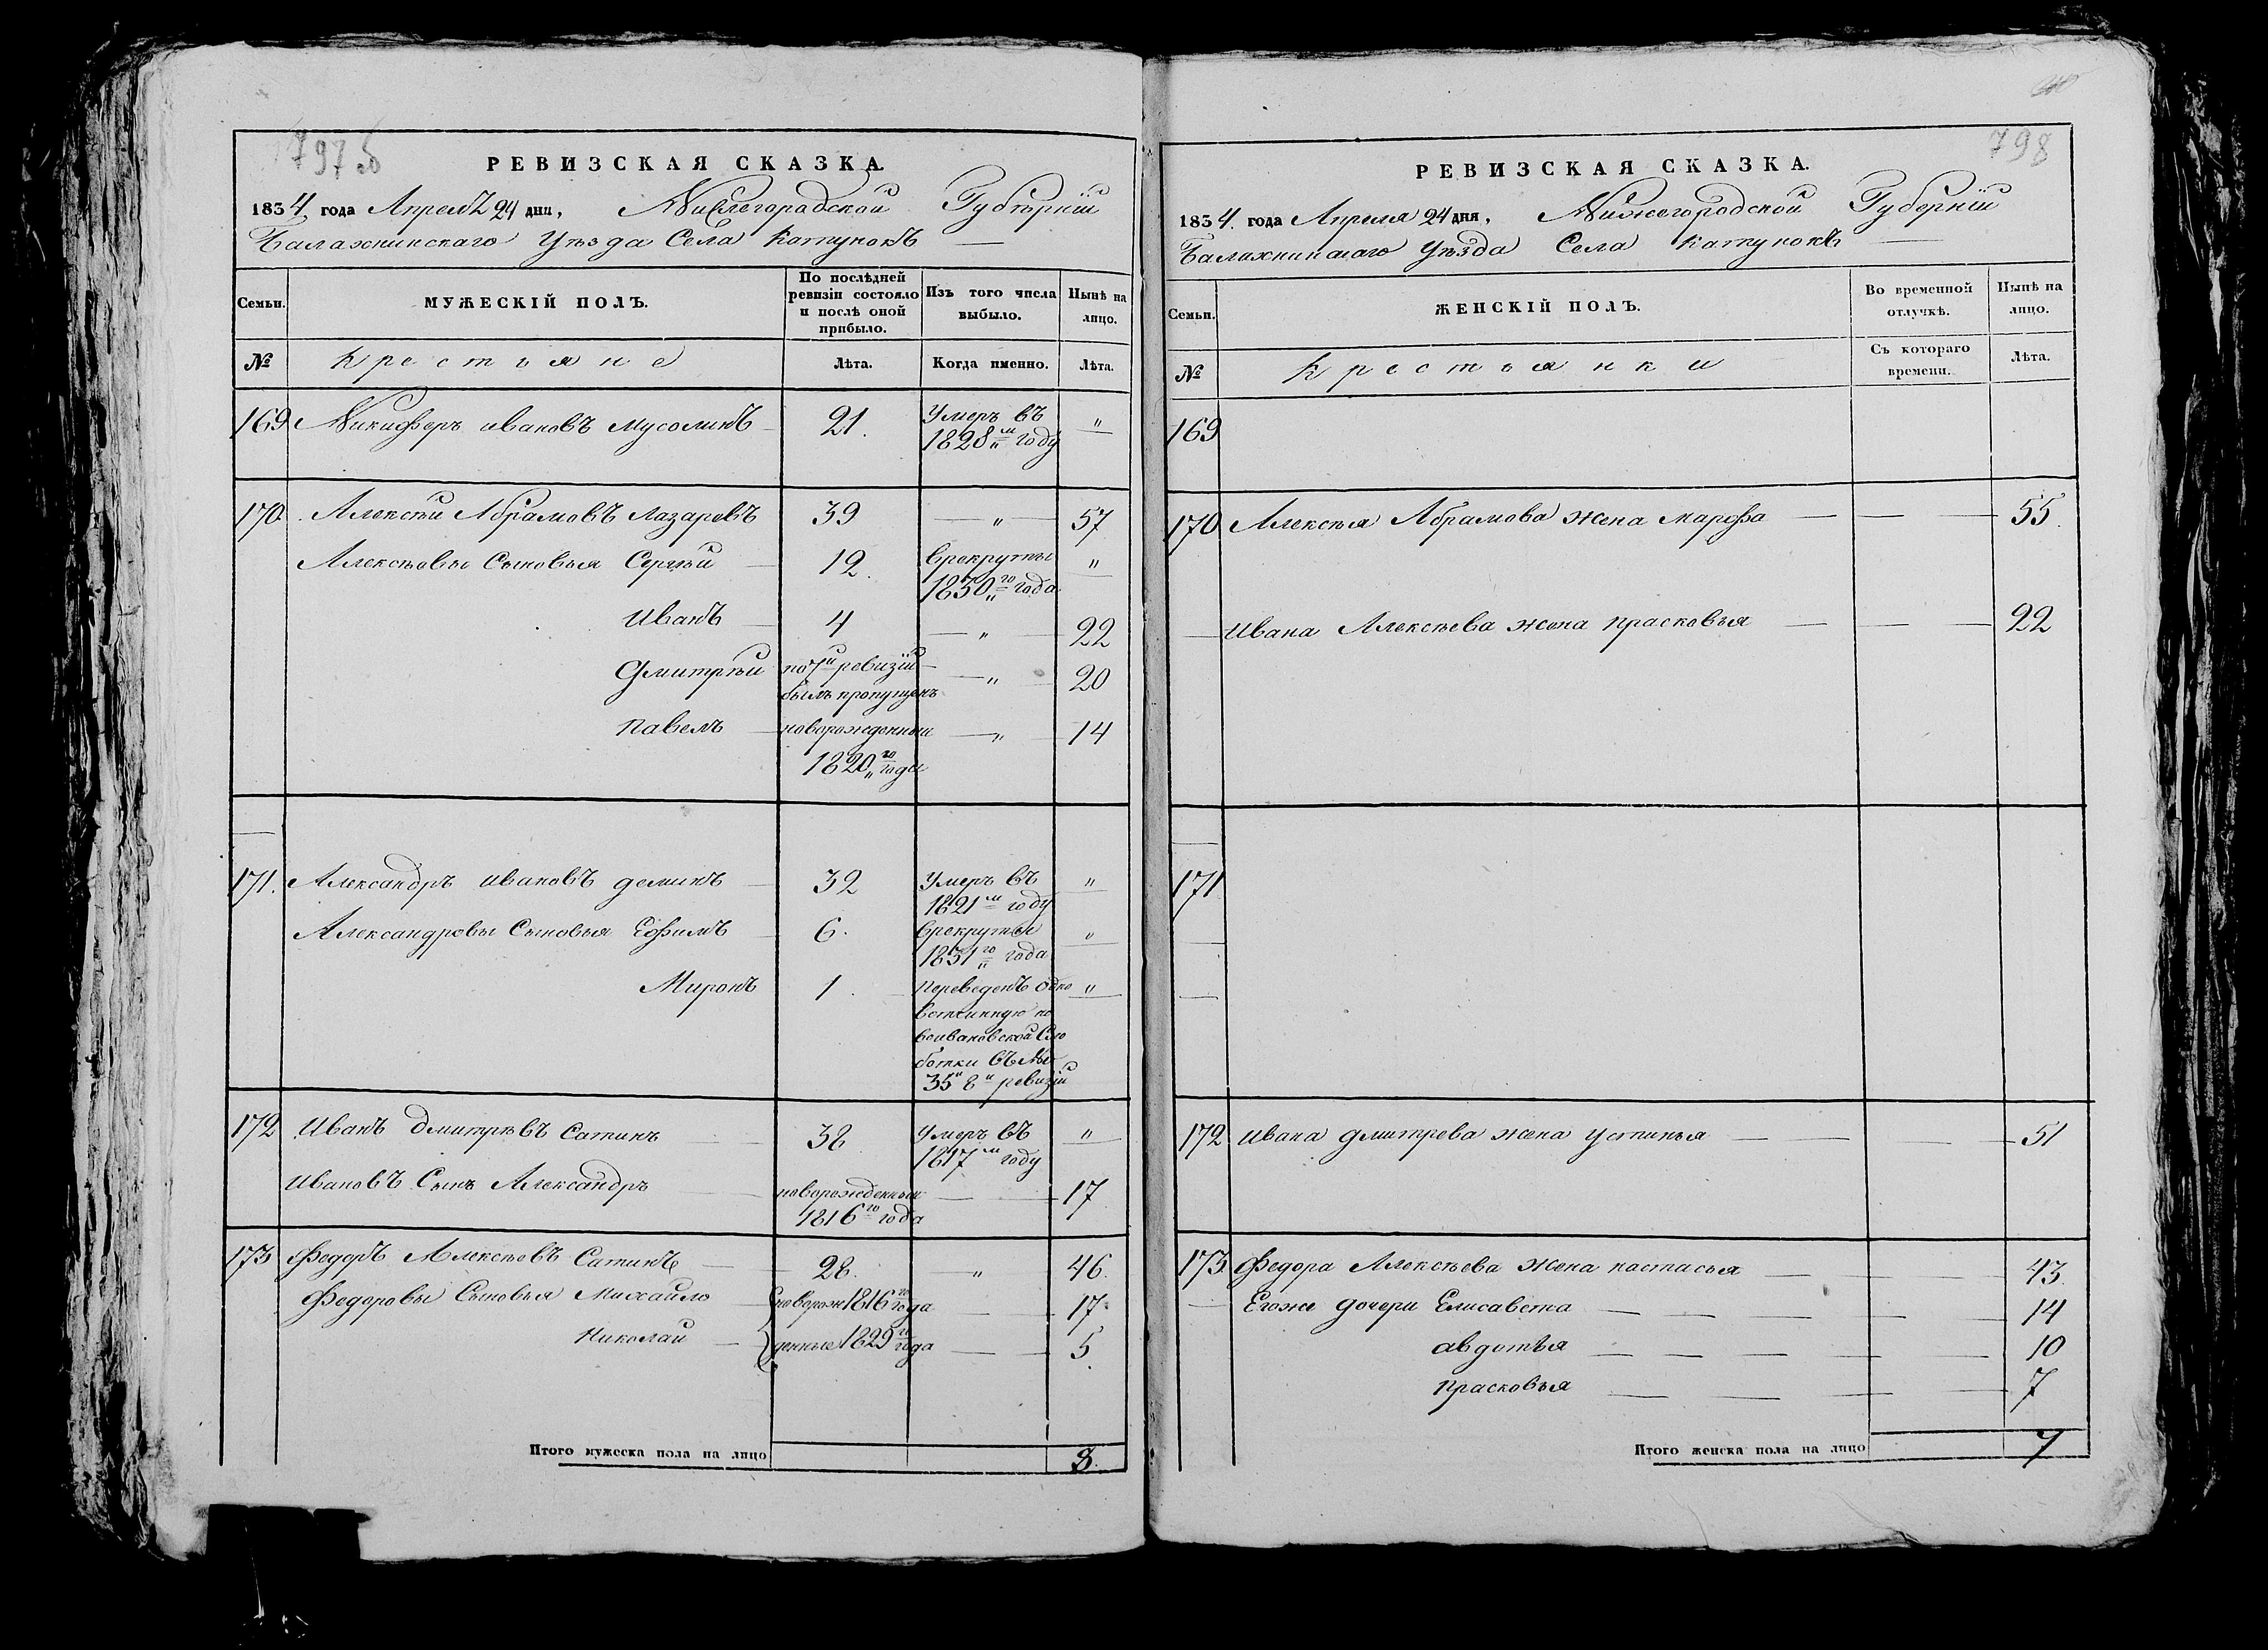 797 об
РЕВИЗСКАЯ СКАЗКА.
1834 года Апреля 24 дня, Нижегородской Губернiи
Балахнинскаго Уѣзда Села Катунокъ
Семьи.
МУЖЕСКІЙ ПОЛЪ.
По послѣдней ревизіи состояло и послѣ оной прибыло.
Изъ того числа выбыло.
Нынѣ на лицо.
№
Крестьяне
Лѣта.
Когда именно.
Лѣта.
169 Никифоръ ивановъ мусолинъ 21. Умеръ въ "
1828м году
170. Алексѣй Абрамовъ Лазаревъ 39 " 57
Алексѣевы Сыновья Сергѣй 12. врекруты "
1830го года
Иванъ 4 " 22
Дмитрѣй по 7й ревизiи " 20
былъ пропущенъ
Павелъ новорожденный " 14
1820го года
171. Александръ ивановъ деминъ 32 Умеръ въ "
1821м году
Александровы Сыновья Ефимъ 6. врекруты "
1831го года
Миронъ 1. Переведенъ "
вотчинную по
воивановской Сло
ботки въ №
35й 8й ревизiи
172 Иванъ Дмитрѣвъ Сатинъ 38 Умеръ въ "
1817м году
Ивановъ Сынъ Александръ новорожденный 17
1816го года
173 Федоръ Алексѣевъ Сатинъ 28. " 46.
Федоровы Сыновья Михайло новорож 1816го года 17.
Николай денные 1829го года 5.
Итого мужеска пола на лицо 8.
798
РЕВИЗСКАЯ СКАЗКА.
1834. года Апреля 24 дня, Нижегородской Губернiи
Балахнинскаго Уѣзда Села Катунокъ
Семьи.
ЖЕНСКІЙ ПОЛЪ.
Во временной отлучкѣ.
Нынѣ на лицо.
№
Крестьянки
Съ котораго времени.
Лѣта.
169
170 Алексѣя Абрамова жена марфа 55.
Ивана Алексѣева жена прасковья 22
171
172 ивана дмитрева жена устинья 51
173 Федора Алексѣева жена настасья 43.
Егоже дочери Елисавета 14
авдотья 10
прасковья 7
Итого женска пола на лицо 7